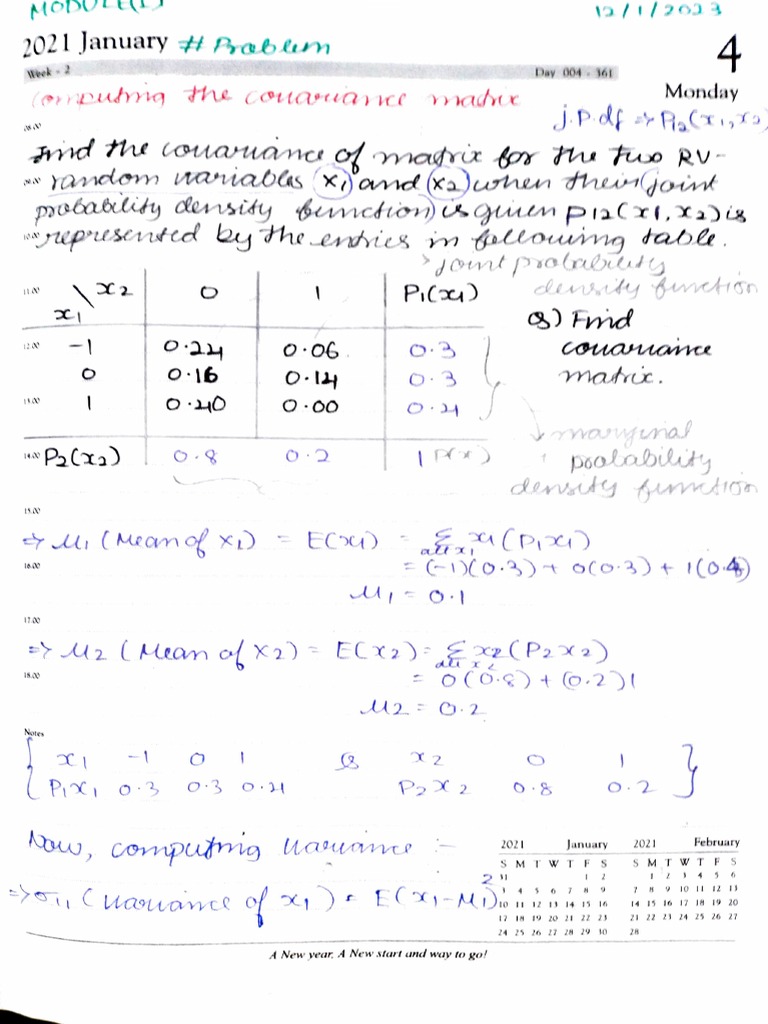 MODULE(1)
12/1/2023
2021 January # Problem
4
Week - 2
Day 004 - 361
Monday
Computing the covariance matrix
j.p.df => P12(x1,x2)
08.00
Find the covariance of matrix for the two RV-
09.00 random variables (x1) and (x2) when their (joint
probability density function) is given p12(x1,x2) is
10.00 represented by the entries in following table.
> joint probability
density function
11.00 x1 \ x2 0 1 P1(x1)
Q) Find
covariance
matrix.
12.00 -1 0.24 0.06 0.3
0 0.16 0.14 0.3
13.00 1 0.40 0.00 0.4
14.00 P2(x2) 0.8 0.2 1 P(x)
marginal
probability
density function
15.00
=> μ1 (Mean of x1) = E(x1) = Σ x1 (P1x1)
all x1
16.00 = (-1)(0.3) + 0(0.3) + 1(0.4)
μ1 = 0.1
17.00
=> μ2 (Mean of x2) = E(x2) = Σ x2 (P2x2)
all x2
18.00 = 0(0.8) + (0.2)1
μ2 = 0.2
Notes
{ x1 -1 0 1 & x2 0 1 }
{ P1x1 0.3 0.3 0.4 P2x2 0.8 0.2 }
Now, computing variance :-
=> σ11 (variance of x1) = E(x1-μ1)²
2021 January
S M T W T F S
31 1 2
3 4 5 6 7 8 9
10 11 12 13 14 15 16
17 18 19 20 21 22 23
24 25 26 27 28 29 30
2021 February
S M T W T F S
1 2 3 4 5 6
7 8 9 10 11 12 13
14 15 16 17 18 19 20
21 22 23 24 25 26 27
28
A New year, A New start and way to go!